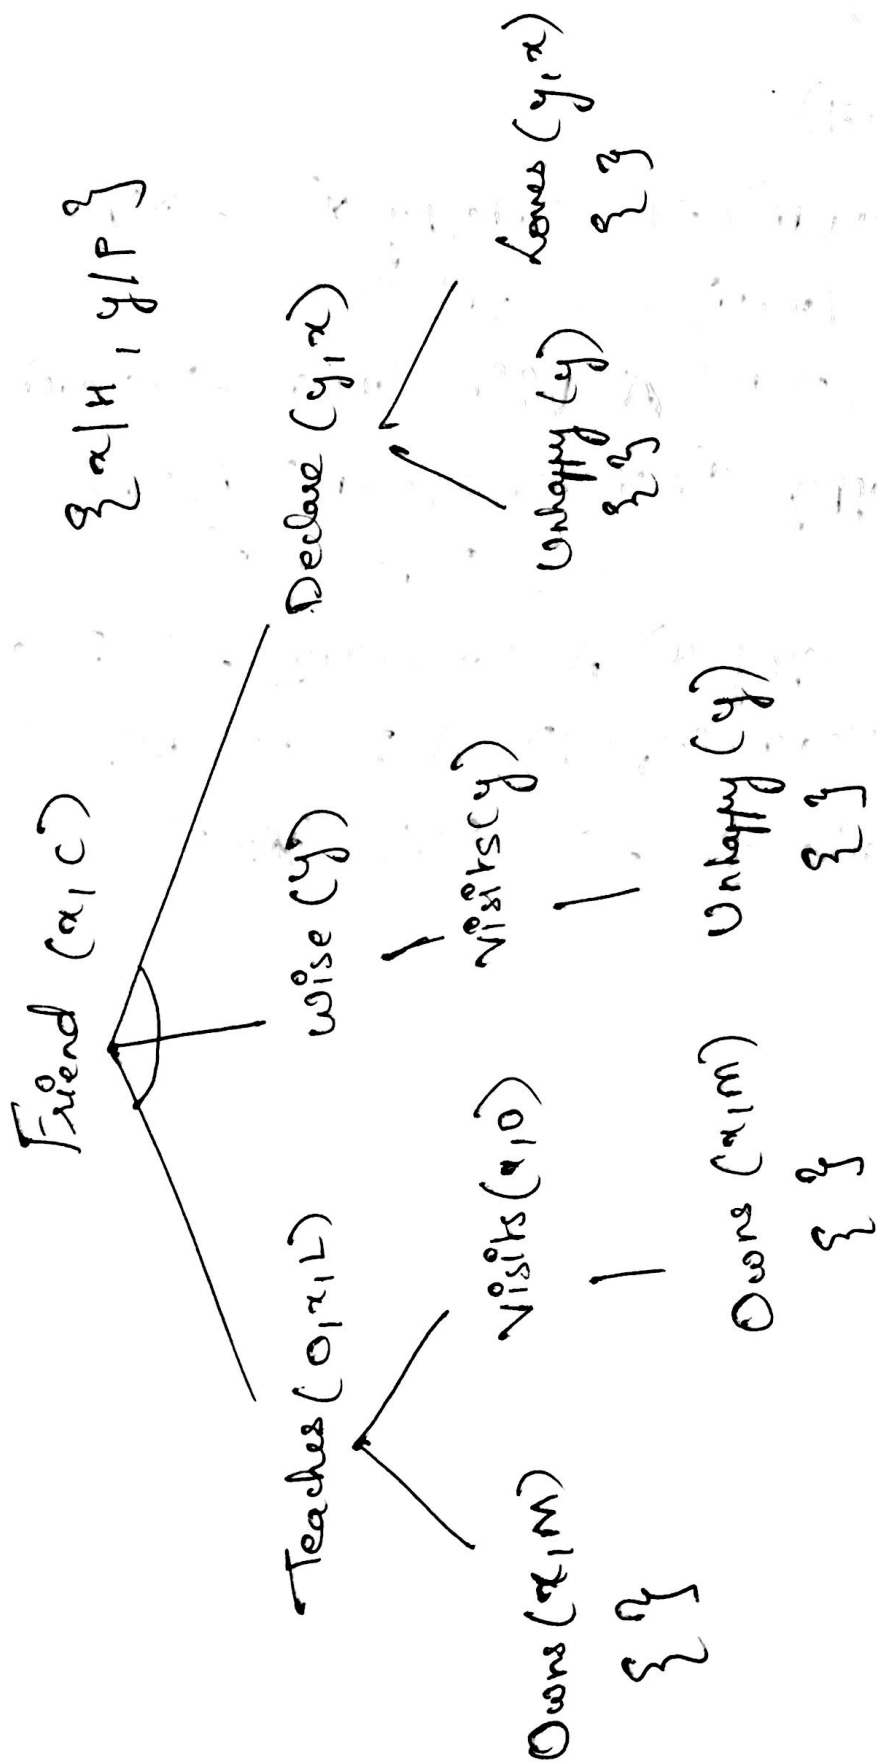 Friend (x, C)
{x/H, y/P}
Teaches (O, x, L)
Wise (y)
Declare (y, x)
Owns (x, M)
{ }
Visits (x, O)
Visits (y)
Unhappy (y)
{ }
Loves (y, x)
{ }
Owns (x, M)
{ }
Unhappy (y)
{ }